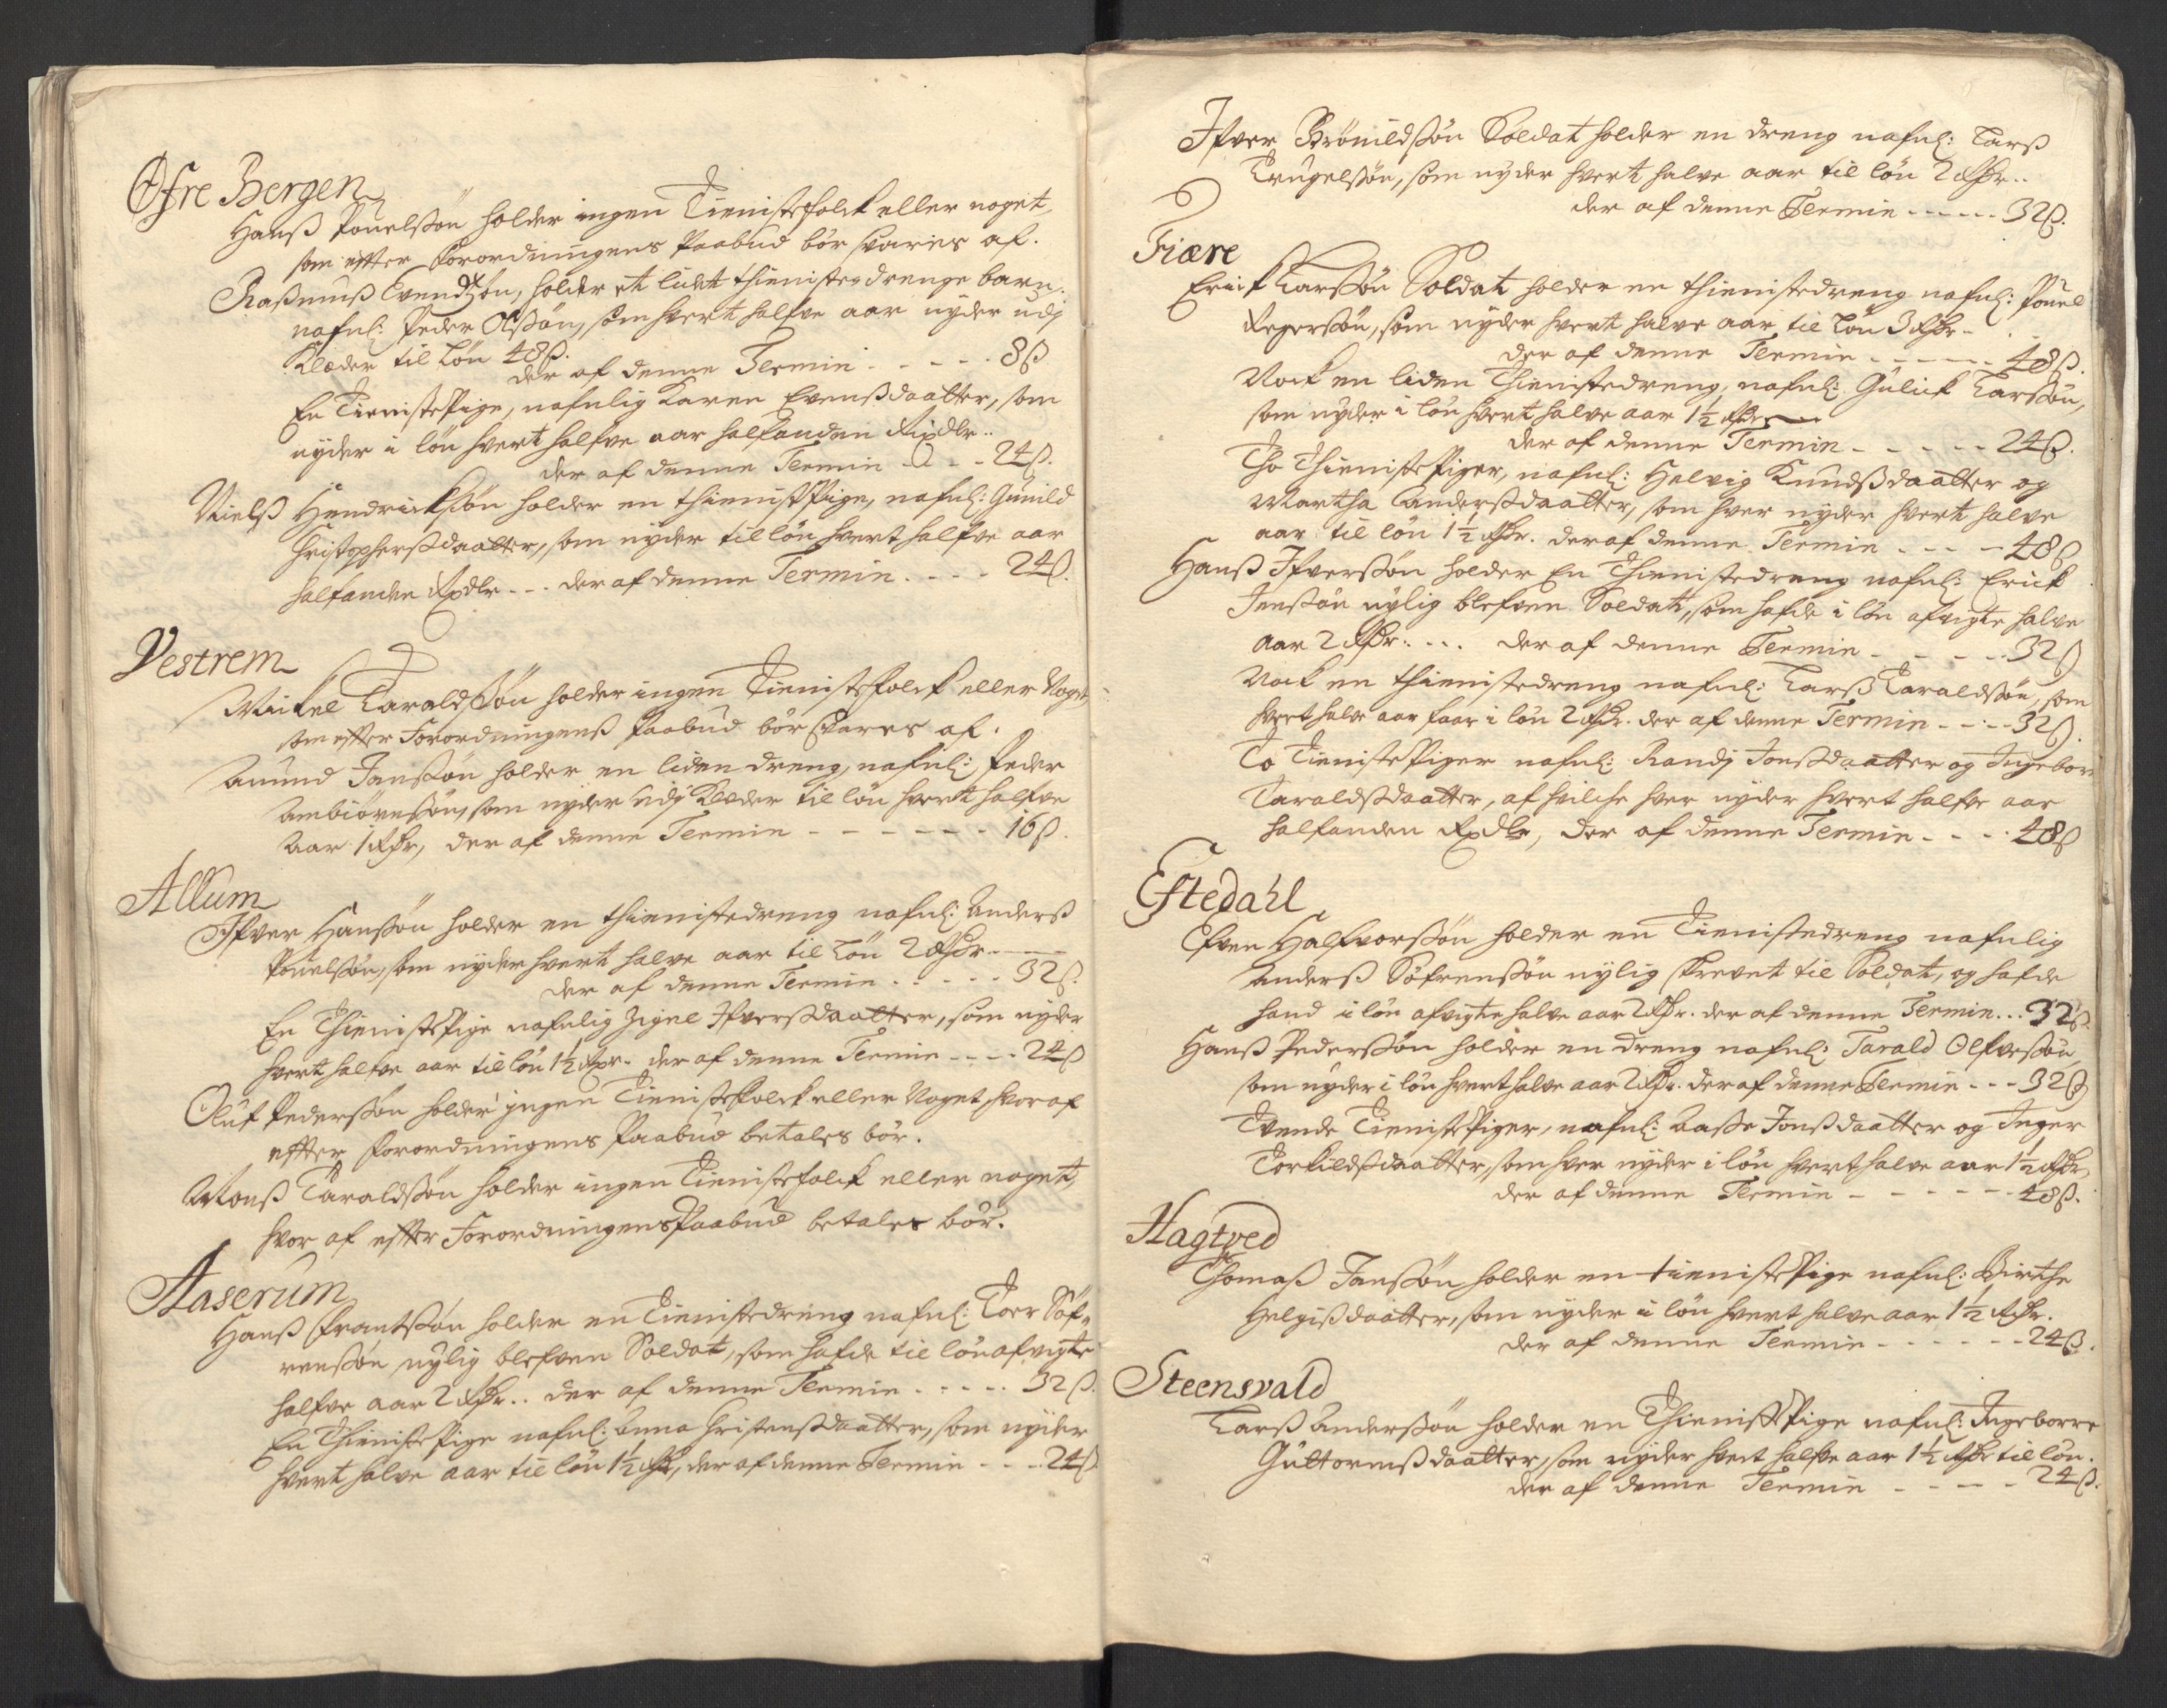 Øfre Bergen
Hanß Pouelßøn holder ingen Tienistefolck eller noget,
som effter Forordningens Paabud bør svaris af.
Raßmuß Evendßøn, holder et lidet thieniste drenge barn,
nafnl: Peder Olßøn, som hvert halfve aar nyder udj
Klæder til Løn 48ß.
der af denne Termin - - - - 8ß
En TienistePige, nafnlig Karen Evenßdaatter, som
nyder i løn hvert halfve aar halfanden Rixdlr..
der af denne Termin - - - 24ß.
Nielß Hendrickßøn holder en thienistPige, nafnl: Gunild
Christopherßdaatter, som nyder til løn hvert halfve aar
halfanden Rxdlr - - - der af denne Termin - - - - 24ß.
Vestrem
Mickel Taraldßøn holder ingen Tienistefolck eller Noget,
som effter Forordningenß Paabud bør svares af.
Amund Janßøn holder en liden dreng, nafnl: Peder
Ambiørnßøn, som nyder udj Klæder til løn hvert halfve
Aar 1 Rdr, der af denne Termin - - - - - - 16ß.
Allum
Ifver Hanßøn holder en thienistedreng nafnl: Anderß
Pouelßøn, som nyder hvert halve aar til Løn 2 Rdr.
der af denne Termin - - - - - 32ß.
En ThienistePige nafnlig Zignl Ifverßdaatter, som nyder
hvert halfve aar til løn 1½ Rdr. der af denne Termin - - - - 24ß
Oluf Pederßøn holder ingen Tienistefolck eller Noget hvor af
effter Forordningens Paabud betales bør.
Monß Taraldßøn holder ingen Tienistefolck eller noget,
hvor af effter Forordningens Paabud betales bør.
Aaserum
Hanß Frantßøn holder en Tienistedreng nafnl: Tor Søf„
renßøn nylig blefven Soldat, som hafde til løn afvigte
halfve aar 2 Rdr.. der af denne Termin - - - - - 32ß.
En ThienistePige nafnl: Anna Christenßdaatter, som nyder
hvert halve aar til løn 1½ Rdr, der af denne Termin - - - 24ß
Ifver Brönildßøn Soldat holder en dreng nafnl: Larß
Trugelßøn, som nyder hvert halve aar til løn 2 Rdr..
der af denne Termin - - - - - 32ß.
Fiære
Erick Larßøn Soldat holder en thienistedreng nafnl: Pouel
Regerßøn, som nyder hvert halve aar til Løn 3 Rdr -
der af denne Termin - - - - - 48ß.
Nock en liden Thienistedreng, nafnl: Gulick Larßøn,
som nyder i løn hvert halve aar 1½ Rdr
der af denne Termin - - - - - 24ß.
Tho ThienistePiger, nafnl: Helvig Knudßdaatter og
Martha Anderßdaatter, som hver nyder hvert halve
aar til løn 1½ Rdr. der af denne Termin - - - - 48ß
Hanß Ifverßøn holder En Thienistedreng nafnl: Erick
Jenßøn nylig blefven Soldat, som hafde i løn afvigte halve
Aar 2 Rdr: - - - der af denne Termin - - - - - 32ß
Nock en thienistedreng nafnl: Larß Taraldßøn, som
hvert halve aar faar i løn 2 Rdr. der af denne Termin - - - - 32ß.
To TienistePiger nafnl: Randj Jonßdaatter og Ingebor
Taraldßdaatter, af hvilche hver nyder hvert halfve aar
halfanden Rxdlr, der af denne Termin - - - - 48ß
Eftedahl
Efven Halfvorßøn holder en Tienistedreng nafnlig
Anderß Söfrenßøn nylig skrevet til Soldat, og hafde
hand i løn afvigte halve aar 2 Rdr. der af denne Termin... 32ß.
Hanß Pederßøn holder en dreng nafnl: Tarald Olfveßøn
som nyder i løn hvert halve aar 2 Rdr. der af denne Termin - - - 32ß
Tvende TienistePiger, nafnl: Aaße Jonßdaatter og Inger
Torkildßdaatter, som hver nyder i løn hvert halve aar 1½ Rdr,
der af denne Termin - - - - - - 48ß.
Hagtved
Thomaß Janßøn holder en tienistePige nafnl: Birthe
Helgißdaatter, som nyder i løn hvert halve aar 1½ Rdr.
der af denne Termin - - - - - - 24ß.
Steensvald
Larß Anderßøn holder en ThienistePige nafnl: Ingeborre
Guttormßdaatter, som nyder hvert halfve aar 1½ Rdr til løn.
der af denne Termin - - - - - 24ß.